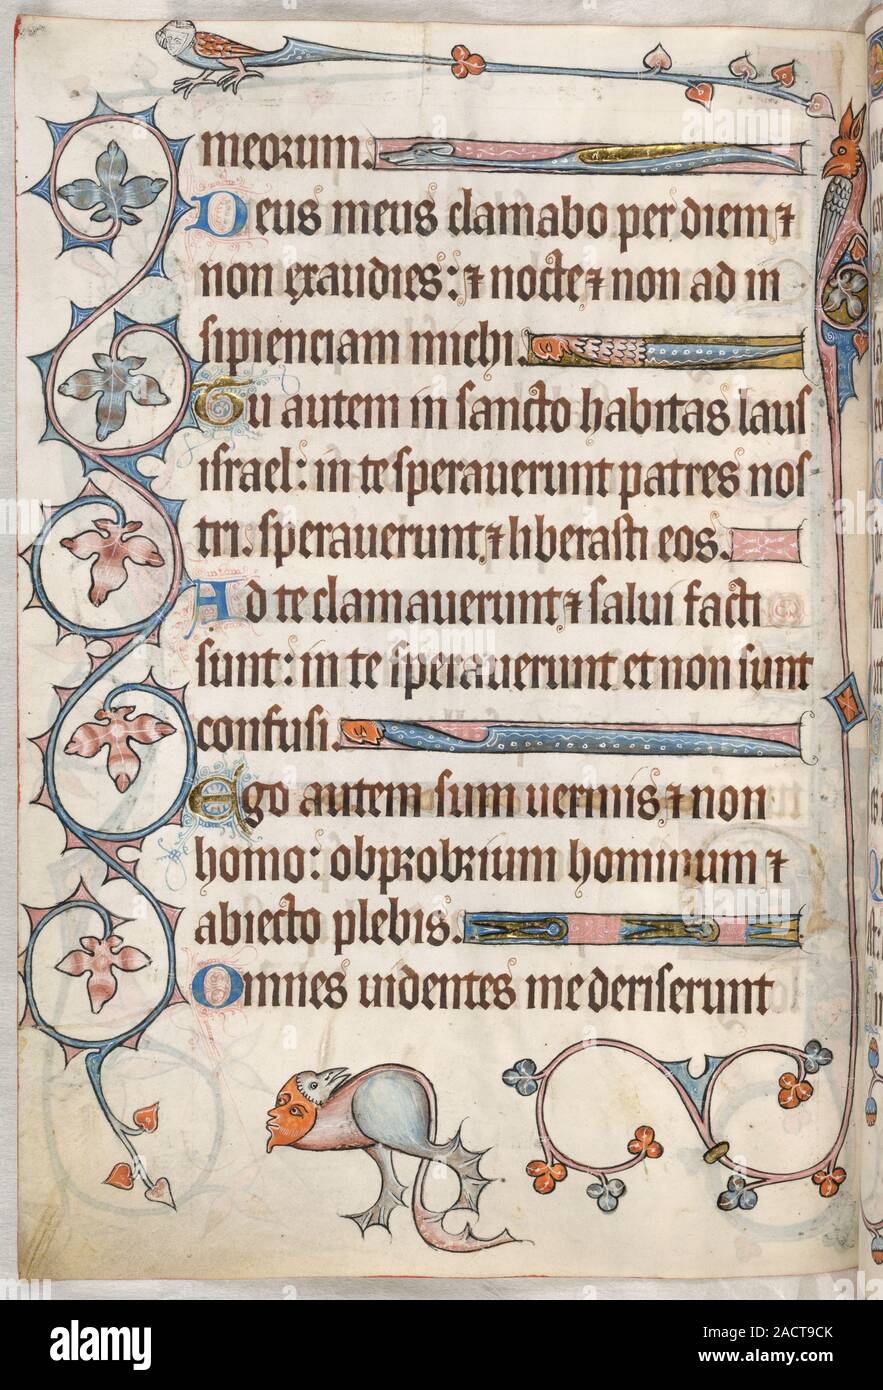 meorum.
Deus meus clamabo per diem ⁊
non exaudies: ⁊ nocte ⁊ non ad in
sipienciam michi.
Tu autem in sancto habitas laus
israel: in te sperauerunt patres nos
tri. sperauerunt ⁊ liberasti eos.
Ad te clamauerunt ⁊ salui facti
sunt: in te sperauerunt et non sunt
confusi.
Ego autem sum uermis ⁊ non
homo: obprobrium hominum ⁊
abiectio plebis.
Omnes uidentes me deriserunt
alamy
Image ID: 2ACT9CK
www.alamy.com